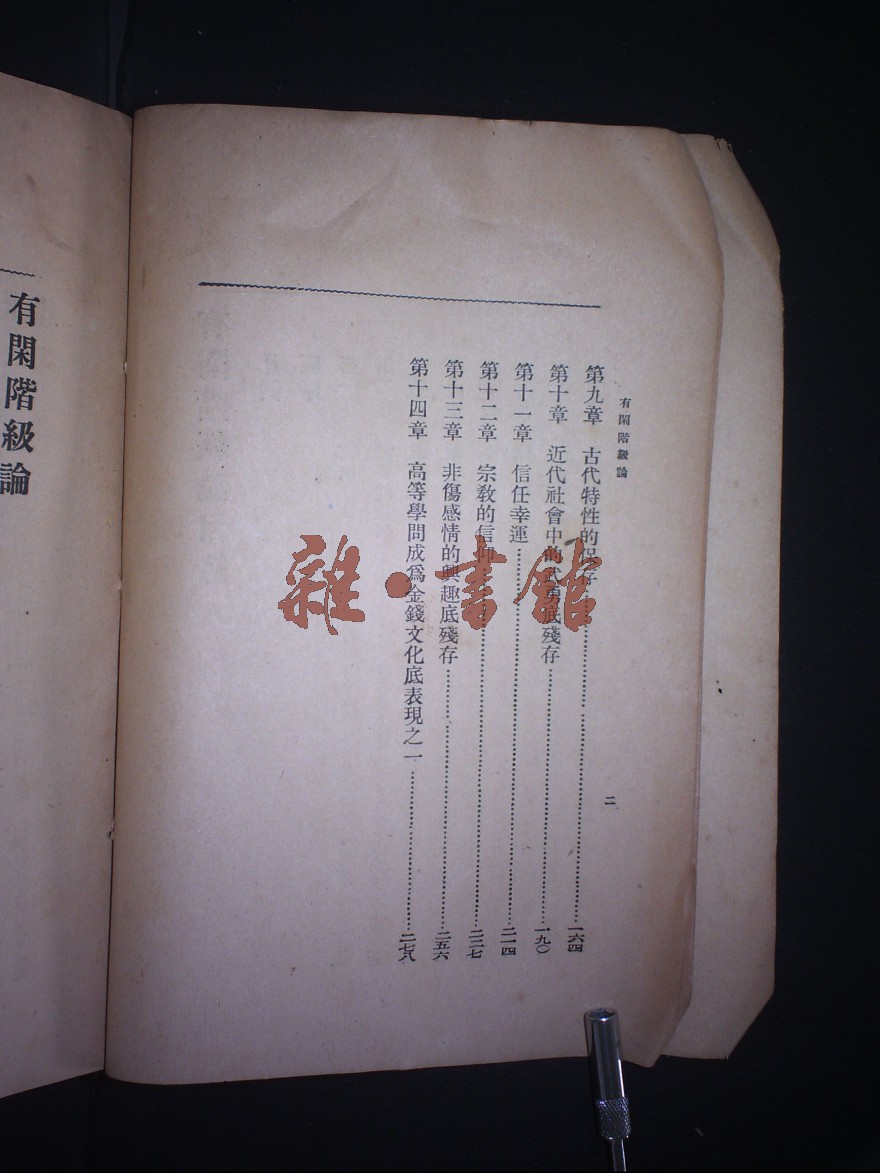 有閑階級論
二
第九章 古代特性的保存……一六四
第十章 近代社會中的武勇底殘存……一九〇
第十一章 信任幸運……二一四
第十二章 宗教的信仰……二三七
第十三章 非傷感情的興趣底殘存……二五六
第十四章 高等學問成爲金錢文化底表現之一……二七八
有閑階級論
雜·書館